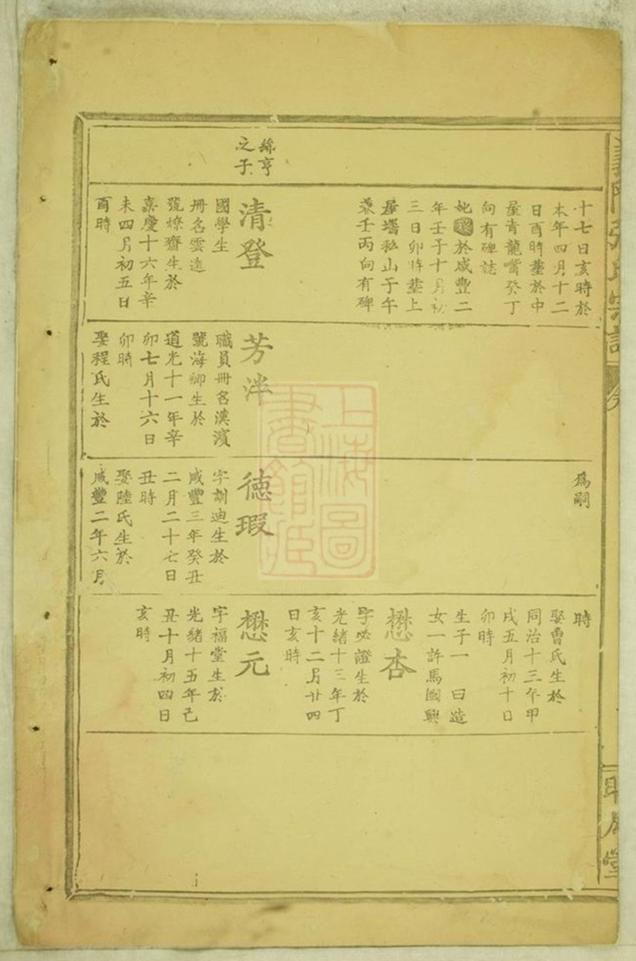 十七日亥時於
本年四月十二
日酉時塟於中
屋青龍嘴癸丁
向有碑誌
妣 於咸豐二
年壬子十月初
三日卯時塟上
屋壪私山子午
兼壬丙向有碑
縣亨
之子
清登
國學生
冊名雲逵
號嫽齋生於
嘉慶十六年辛
未四月初五日
酉時
芳泮
職員冊名漢濱
號海卿生於
道光十一年辛
卯七月十六日
卯時
娶程氏生於
為嗣
德瑕
字訓迪生於
咸豐三年癸丑
二月二十七日
丑時
娶陸氏生於
咸豐二年六月
時
娶曹氏生於
同治十三年甲
戌五月初十日
卯時
生子一 曰造
女一許馬國興
懋杏
字 證生於
光緒十三年丁
亥十二月廿四
日亥時
懋元
字福堂生於
光緒十五年己
丑十月初四日
亥時
張氏宗譜
堂
上海圖
書館藏